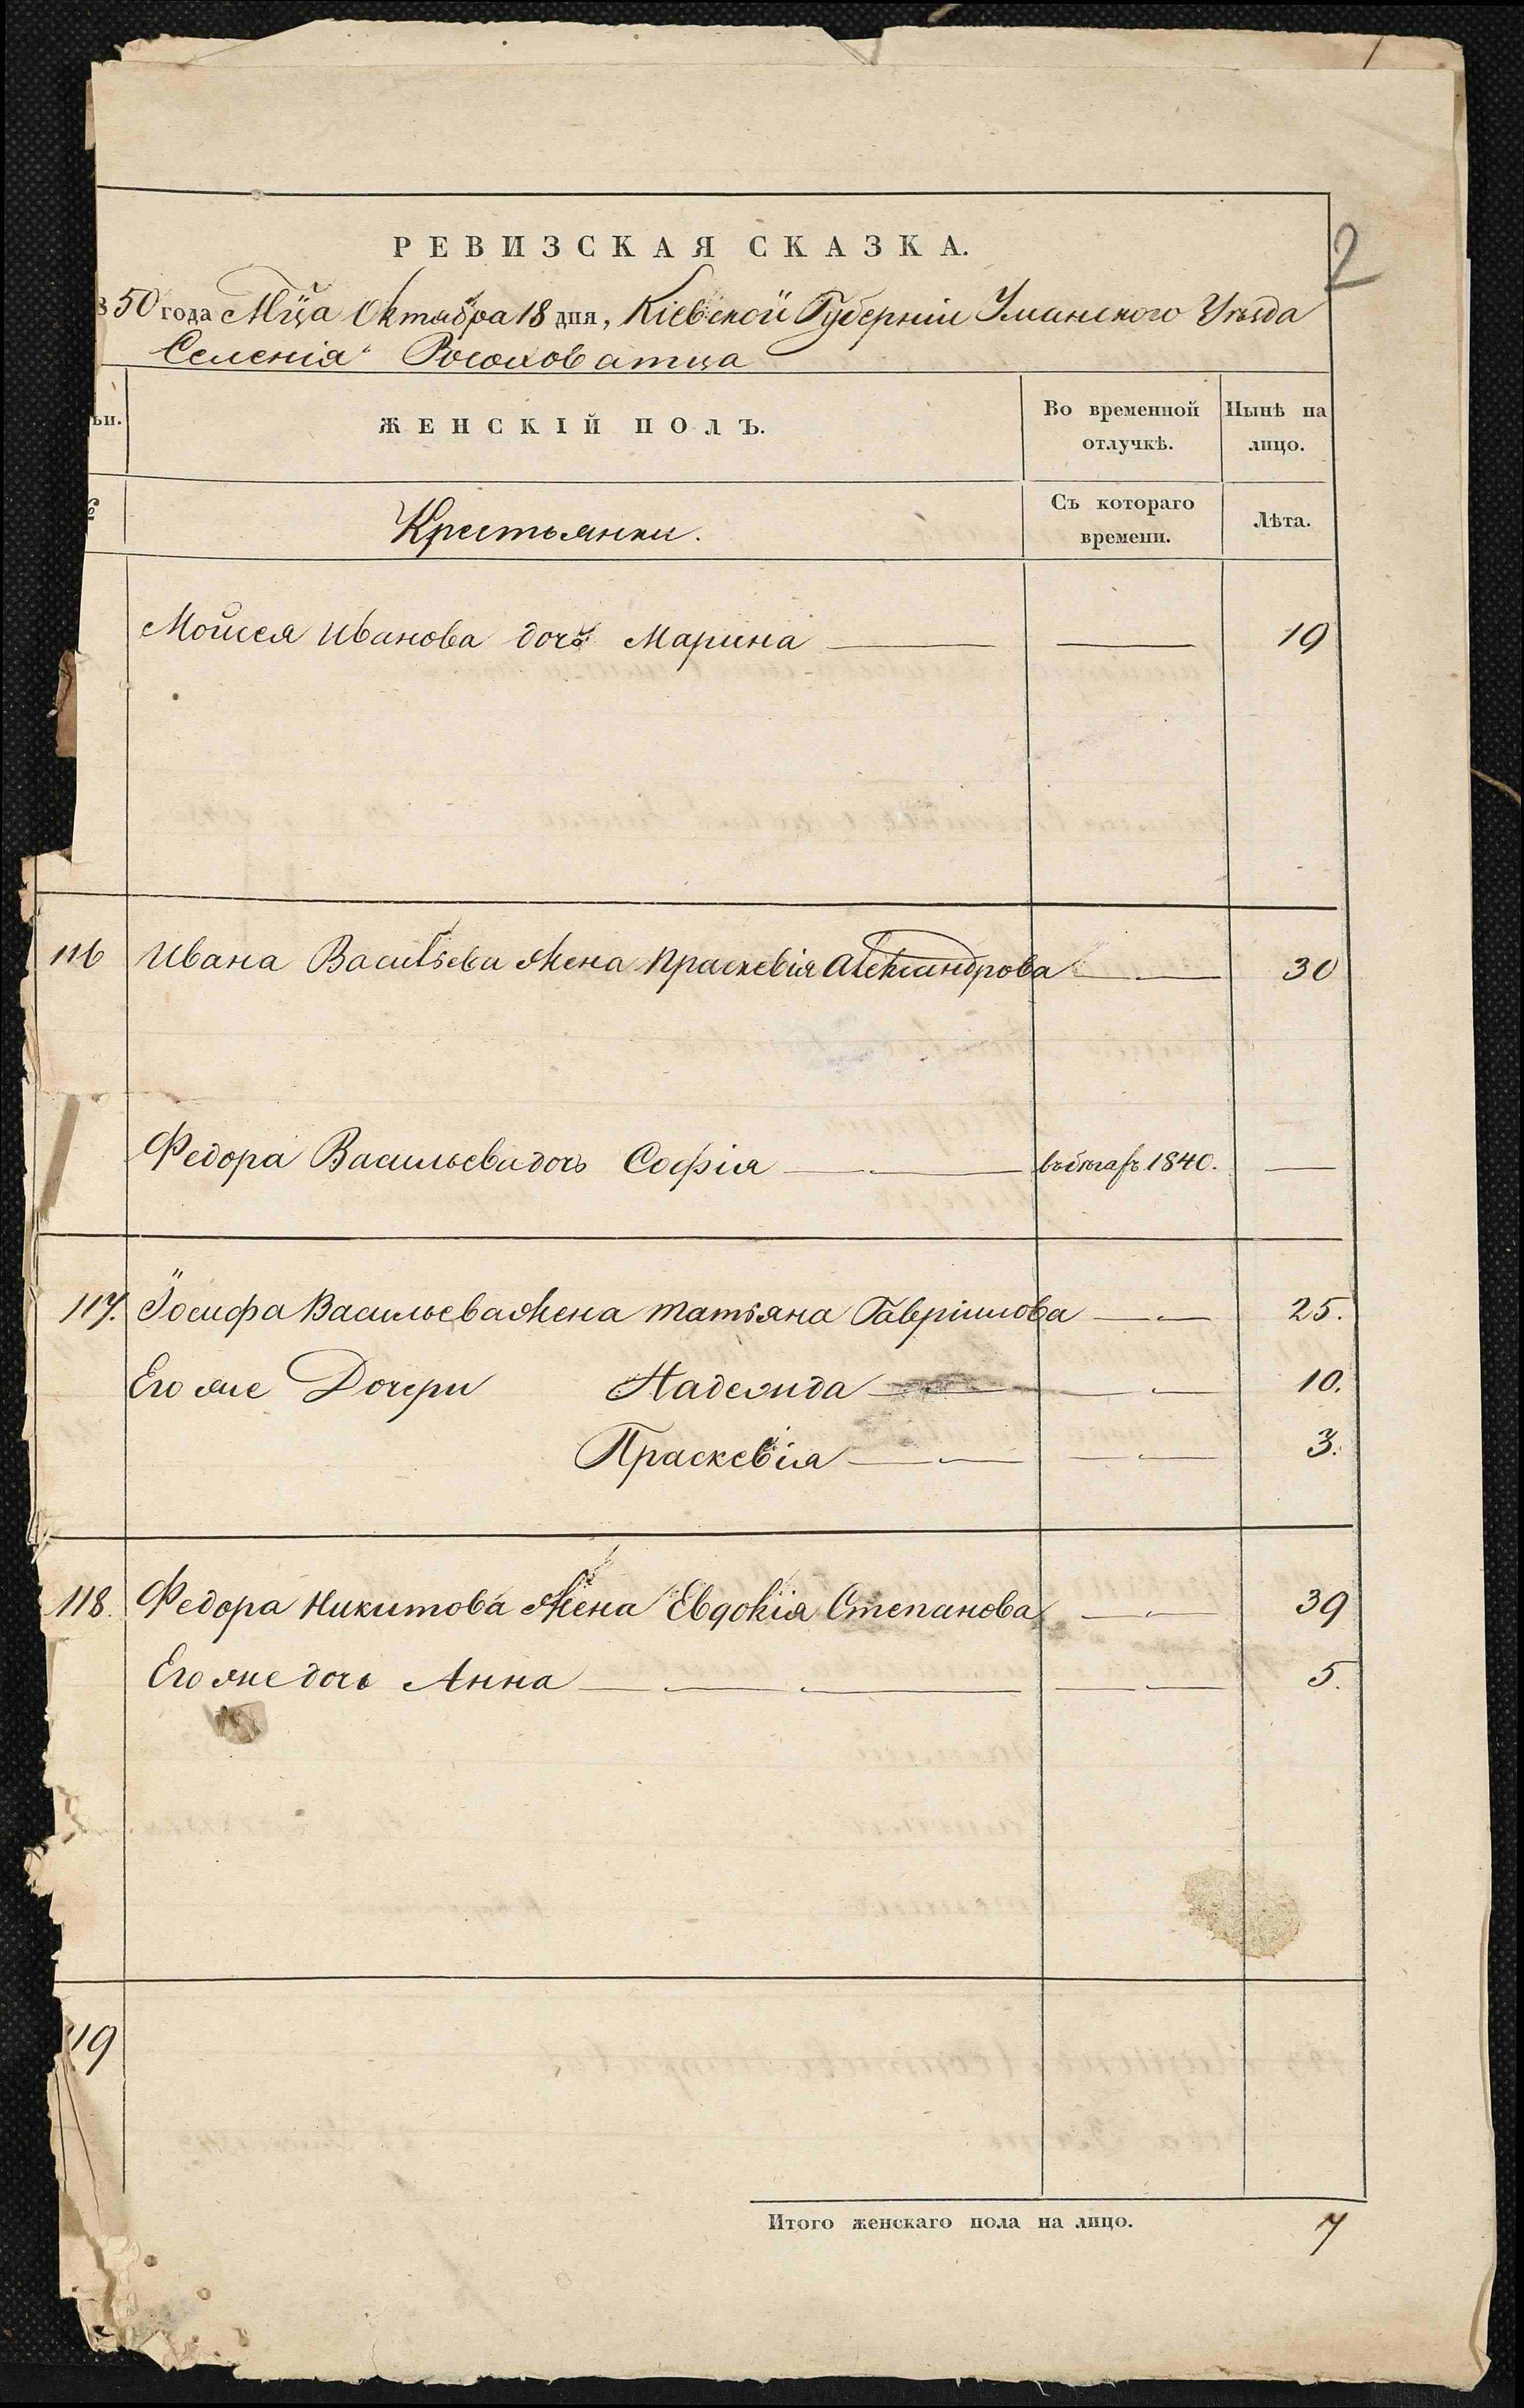 2
РЕВИЗСКАЯ СКАЗКА.
50 года Мца Октября 18 дня, Кіевской Губерніи Уманского Уѣзда
Селенія Росоховатца
ьи. ЖЕНСКІЙ ПОЛЪ. Во временной отлучкѣ. Нынѣ на лицо.
№ Крестьянки. Съ котораго времени. Лѣта.
Мойсея Иванова дочь Марина 19
116 Ивана Васильева жена Праскевія Александрова 30
Федора Васильева дочь Софія 1840.
117. Іосифа Васильева жена Татьяна Гавріилова 25.
Его же Дочери Надежда 10.
Праскевія 3.
118. Федора Никитова жена Евдокія Степанова 39
Его же дочь Анна 5.
119
Итого женскаго пола на лицо. 7